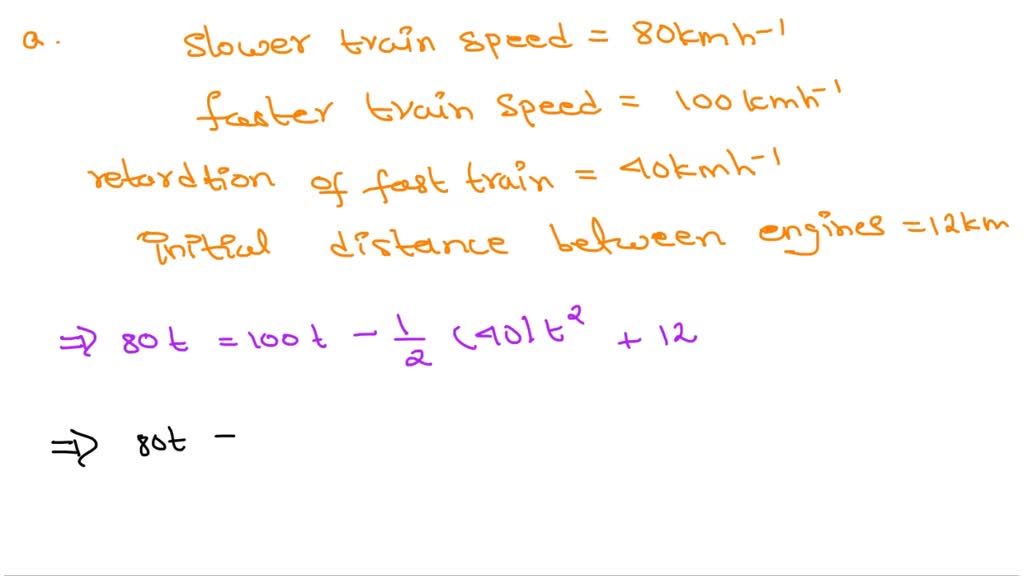 a. slower train speed = 80kmh⁻¹
faster train speed = 100kmh⁻¹
retardtion of fast train = 40kmh⁻¹
initial distance between engines = 12km
⇒ 80t = 100t - 1/2 (40)t² + 12
⇒ 80t -